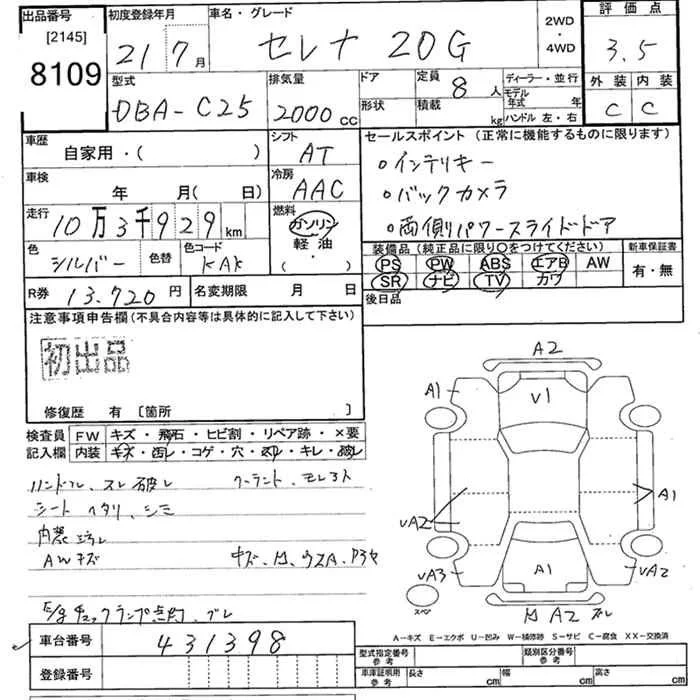 出品番号
[2145]
8109
初度登録年月
21 7月
車名・グレード
セレナ 20G
2WD
・
4WD
評価点
3.5
外装 内装
C C
型式
DBA-C25
排気量
2000cc
ドア
形状
定員
8人
積載
kg
ディーラー・並行
モデル年式 年
ハンドル 左・右
車歴
自家用・( )
シフト
AT
車検
年 月( 日)
冷房
AAC
走行
10万3千929km
燃料
ガソリン
軽油
( ・ )
色
シルバー
色替
色コード
KAK
R券 13.720円
名変期限 月 日
セールスポイント (正常に機能するものに限ります)
○インテリキー
○バックカメラ
○両側パワースライドドア
装備品(純正品に限り○をつけてください)
PS PW ABS エアB AW
SR ナビ TV カワ
新車保証書
有・無
後日品
注意事項申告欄(不具合内容等は具体的に記入して下さい)
初出品
修復歴 有 [箇所 ]
検査員記入欄
FW キズ・飛石・ヒビ割・リペア跡・×要
内装 キズ・凹レ・コゲ・穴・・キレ・破レ
ハンドル、スレ破レ
シート ヘタリ、シミ
内装汚レ
AWキズ
E/gチェックランプ点灯、ブレ
車台番号 431398
登録番号
A2
A1
V1
A1
UA2
UA3
A1
UA2
A2
スペア
A-キズ E-エクボ U-凹み W-補修跡 S-サビ C-腐食 XX-交換済
型式指定番号
参考
類別区分番号
参考
車庫証明用
参考
長さ cm
幅 cm
高さ cm